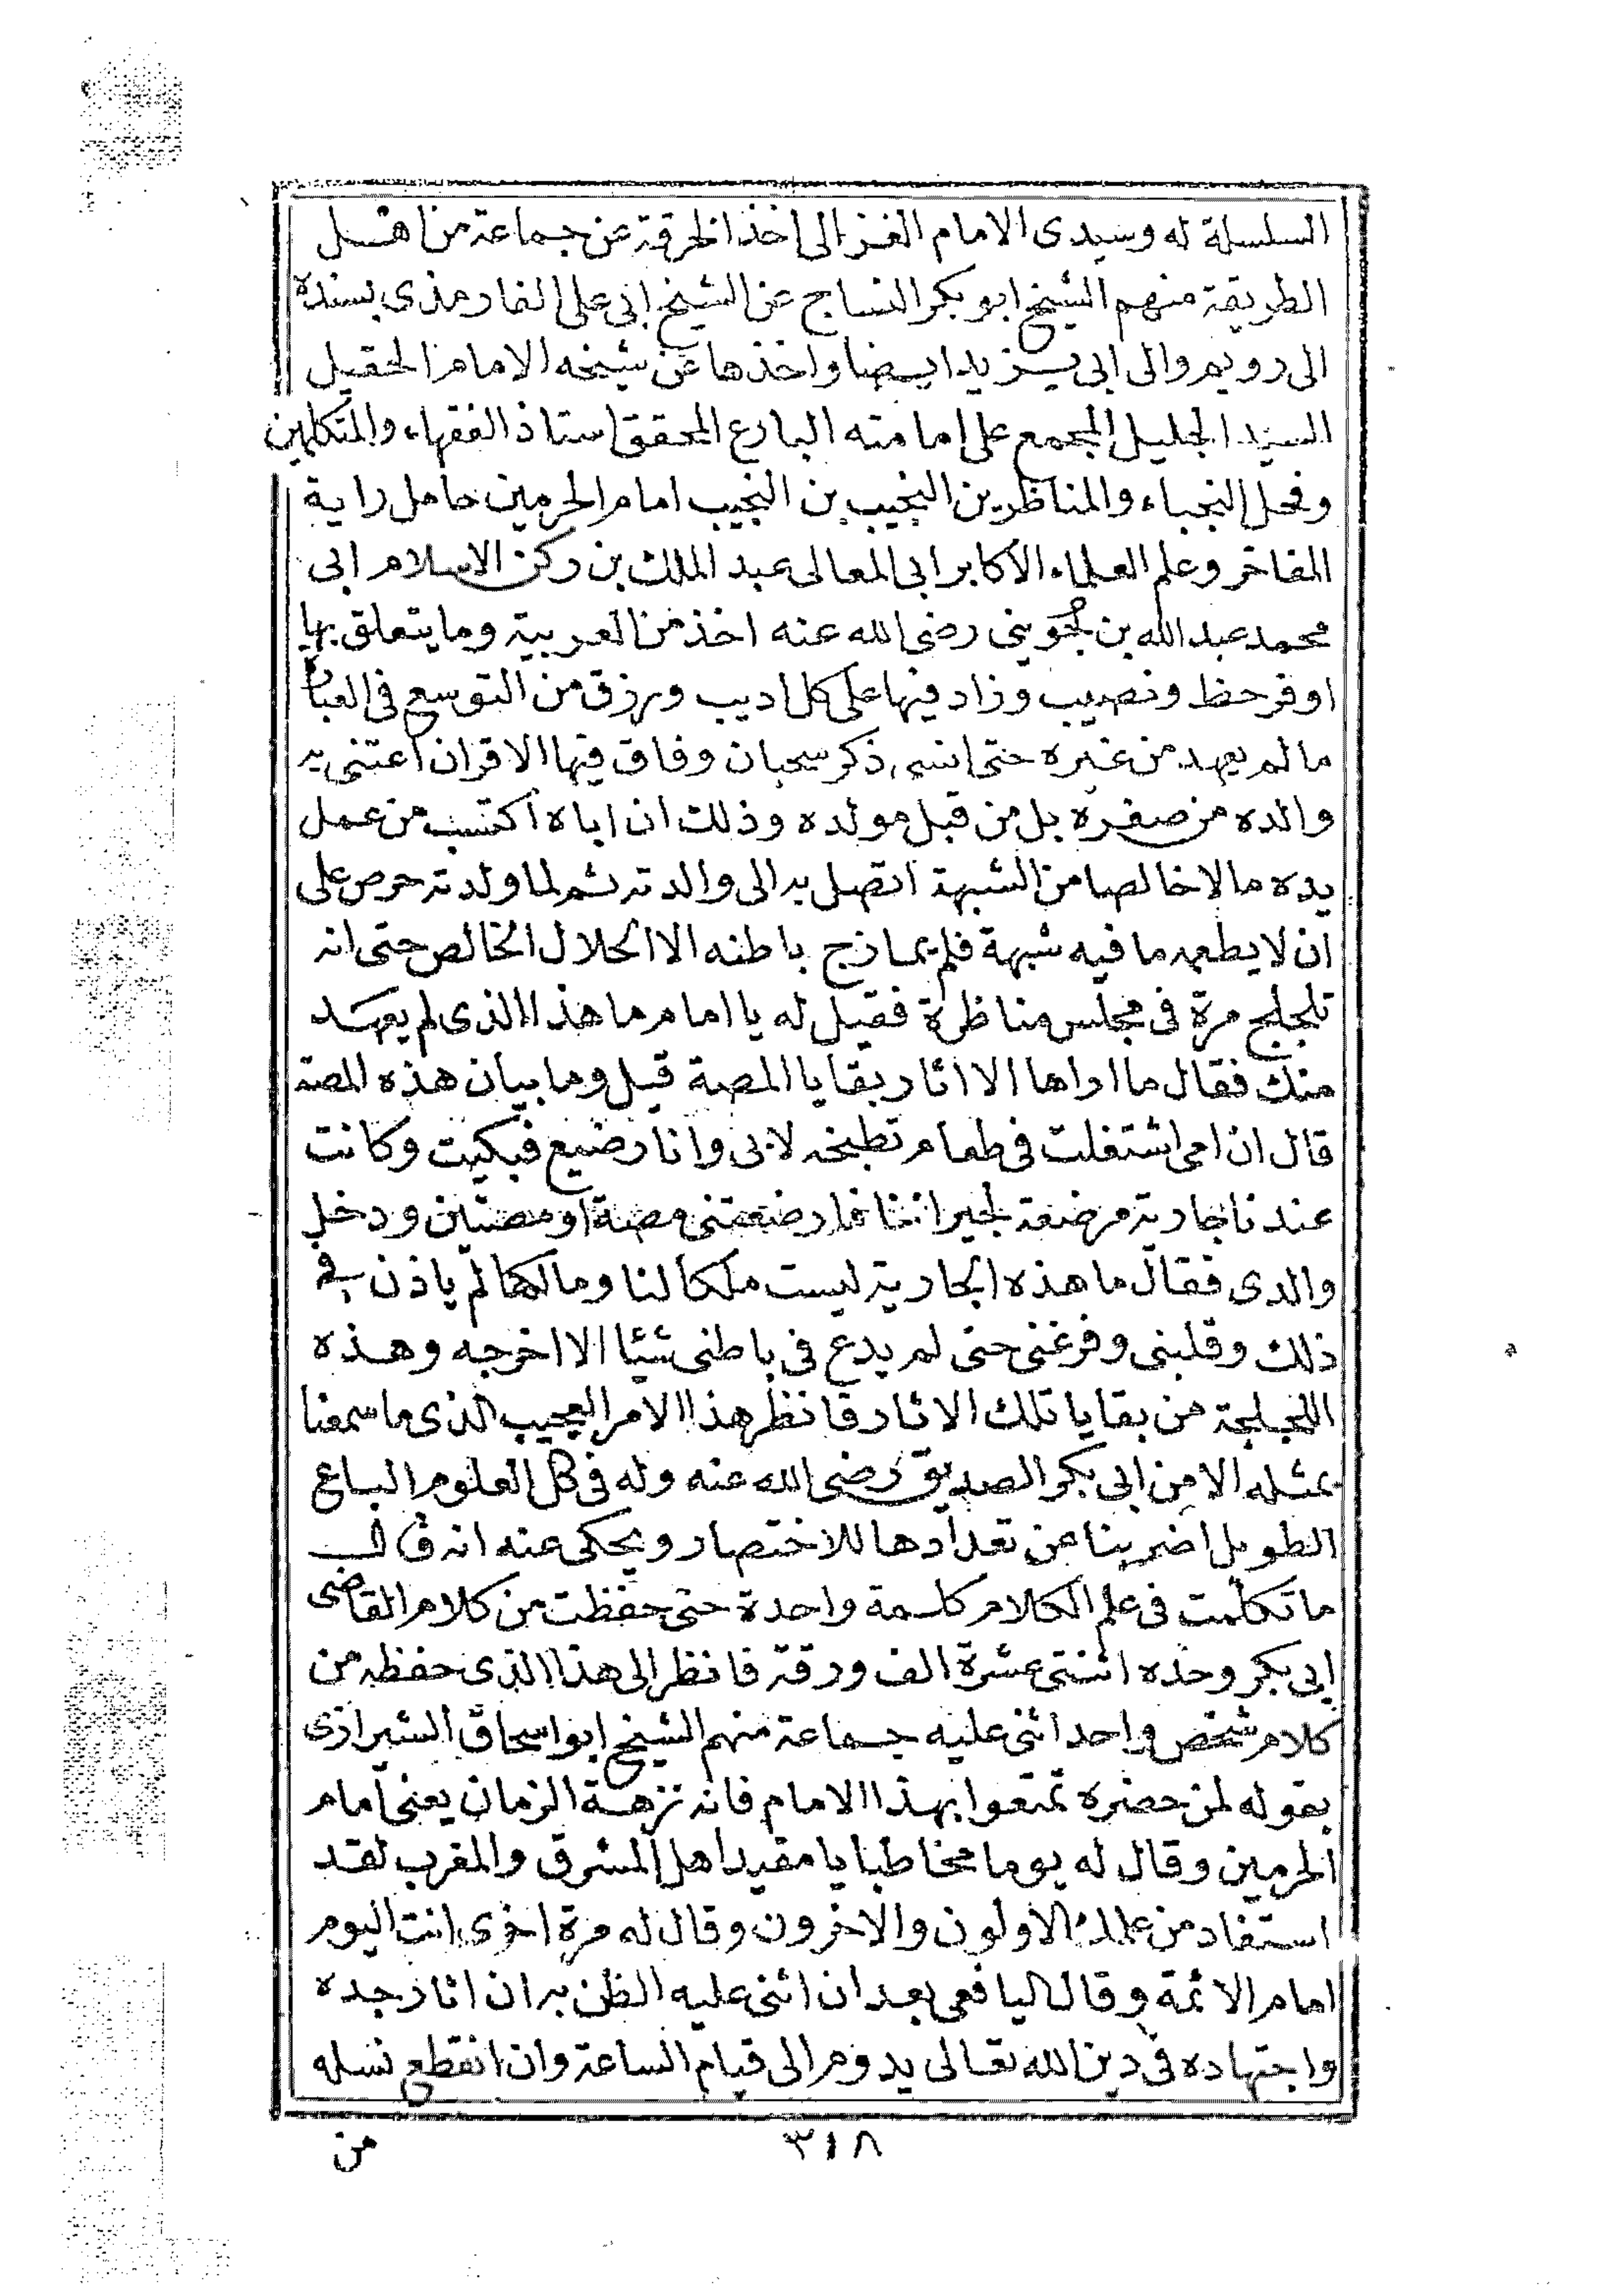 السلسلة له وسيدى الامام الغزالى اخذ الخرقة عن جماعة من اهل
الطريقة منهم الشيخ ابو بكر النساج عن الشيخ ابى على الفارمذى بسنده
الى رويم والى ابى يزيد ايضا واخذها عن شيخه الامام الحقيل
السيد الجليل المجمع على امامته البارع المحقق استاذ الفقهاء والمتكلمين
وفحل النجباء والمناظرين النجيب بن النجيب امام الحرمين حامل راية
المفاخر وعلم العلماء الاكابر ابى المعالى عبد الملك بن ركن الاسلام ابى
محمد عبد الله بن لجوينى رضى الله عنه اخذ من العربية وما يتعلق بها
اوفر حظ ونصيب وزاد فيها على كل اديب ورزق من التوسع فى العبارة
ما لم يعهد من غيره حتى انسى ذكر سحبان وفاق فيها الاقران اعتنى به
والده من صغره بل من قبل مولده وذلك ان اباه اكتسب من عمل
يده مالا خالصا من الشبهة اتصل به الى والدته ثم لما ولدته حرص على
ان لا يطعمه ما فيه شبهة فلم يمازج باطنه الا الحلال الخالص حتى انه
تلجلج مرة فى مجلس مناظرة فقيل له يا امام ما هذا الذى لم يعهد
منك فقال ما اراها الا اثار بقايا المصة قيل وما بيان هذه المصة
قال ان امى اشتغلت فى طعام تطبخه لابى وانا رضيع فبكيت وكانت
عندنا جارية مرضعة لجيراننا فارضعتنى مصة او مصتين ودخل
والدى فقال ما هذه الجارية ليست ملكا لنا ومالكها لم ياذن فى
ذلك وقلبنى وفرغنى حتى لم يدع فى باطنى شيئا الا اخرجه وهذه
اللجلجة من بقايا تلك الاثار فانظر هذا الامر العجيب الذى ما سمعنا
بمثله الا من ابى بكر الصديق رضى الله عنه وله فى كل العلوم الباع
الطويل اضربنا عن تعدادها للاختصار ويحكى عنه انه قال
ما تكلمت فى علم الكلام كلمة واحدة حتى حفظت من كلام القاضى
ابى بكر وحده اثنتى عشرة الف ورقة فانظر الى هذا الذى حفظه من
كلام شخص واحد اثنى عليه جماعة منهم الشيخ ابو اسحاق الشيرازى
بقوله لمن حضره تمتعوا بهذا الامام فانه نزهة الزمان يعنى امام
الحرمين وقال له يوما مخاطبا يا مفيد اهل المشرق والمغرب لقد
استفاد من علمك الاولون والاخرون وقال له مرة اخرى انت اليوم
امام الائمة وقال اليافعى بعد ان اثنى عليه الظن به ان اثار جده
واجتهاده فى دين الله تعالى يدوم الى قيام الساعة وان انقطع نسله
من
٣١٨